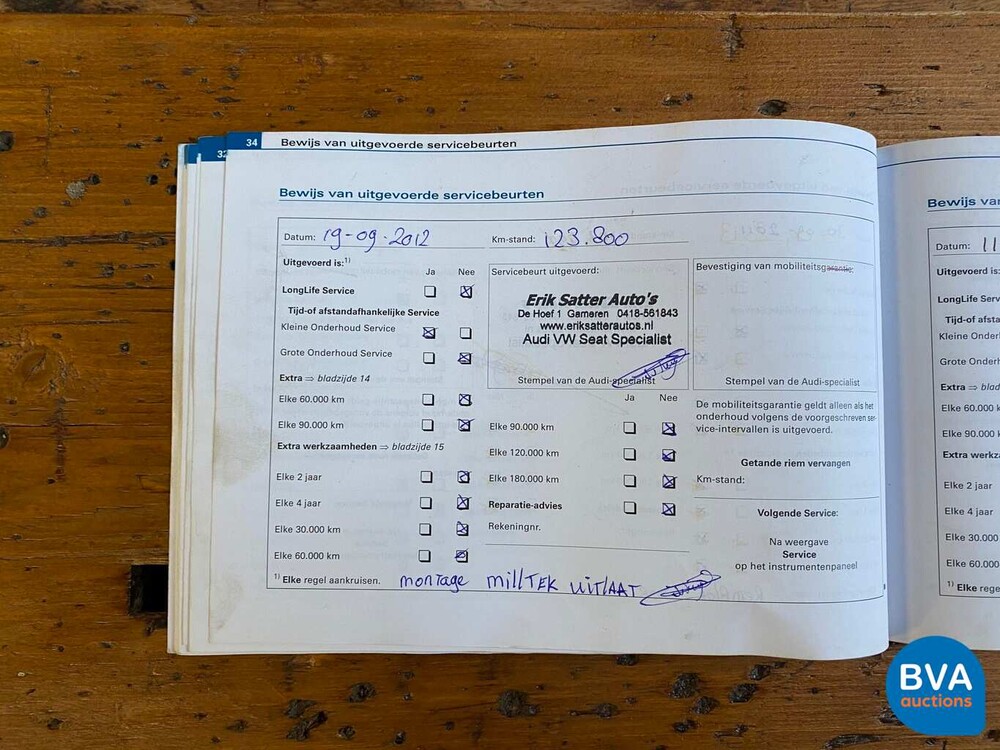 34 Bewijs van uitgevoerde servicebeurten
32
Bewijs van uitgevoerde servicebeurten
Datum: 19-09-2012 Km-stand: 123.800
Uitgevoerd is:1)
Ja Nee
LongLife Service
Tijd-of afstandafhankelijke Service
Kleine Onderhoud Service
Grote Onderhoud Service
Extra ⇒ bladzijde 14
Elke 60.000 km
Elke 90.000 km
Extra werkzaamheden ⇒ bladzijde 15
Elke 2 jaar
Elke 4 jaar
Elke 30.000 km
Elke 60.000 km
1) Elke regel aankruisen.
montage millTEK UITLAAT
Servicebeurt uitgevoerd:
Erik Satter Auto's
De Hoef 1 Gameren 0418-561843
www.eriksatterautos.nl
Audi VW Seat Specialist
Stempel van de Audi-specialist
Ja Nee
Elke 90.000 km
Elke 120.000 km
Elke 180.000 km
Reparatie-advies
Rekeningnr.
Bevestiging van mobiliteitsgarantie:
Stempel van de Audi-specialist
De mobiliteitsgarantie geldt alleen als het
onderhoud volgens de voorgeschreven ser-
vice-intervallen is uitgevoerd.
Getande riem vervangen
Km-stand:
Volgende Service:
Na weergave
Service
op het instrumentenpaneel
Bewijs va
Datum: 11
Uitgevoerd is:
LongLife Serv
Tijd-of afsta
Kleine Onderh
Grote Onderh
Extra ⇒ blad
Elke 60.000
Elke 90.000 k
Extra werkza
Elke 2 jaar
Elke 4 jaar
Elke 30.000
Elke 60.000
1) Elke rege
BVA
auctions